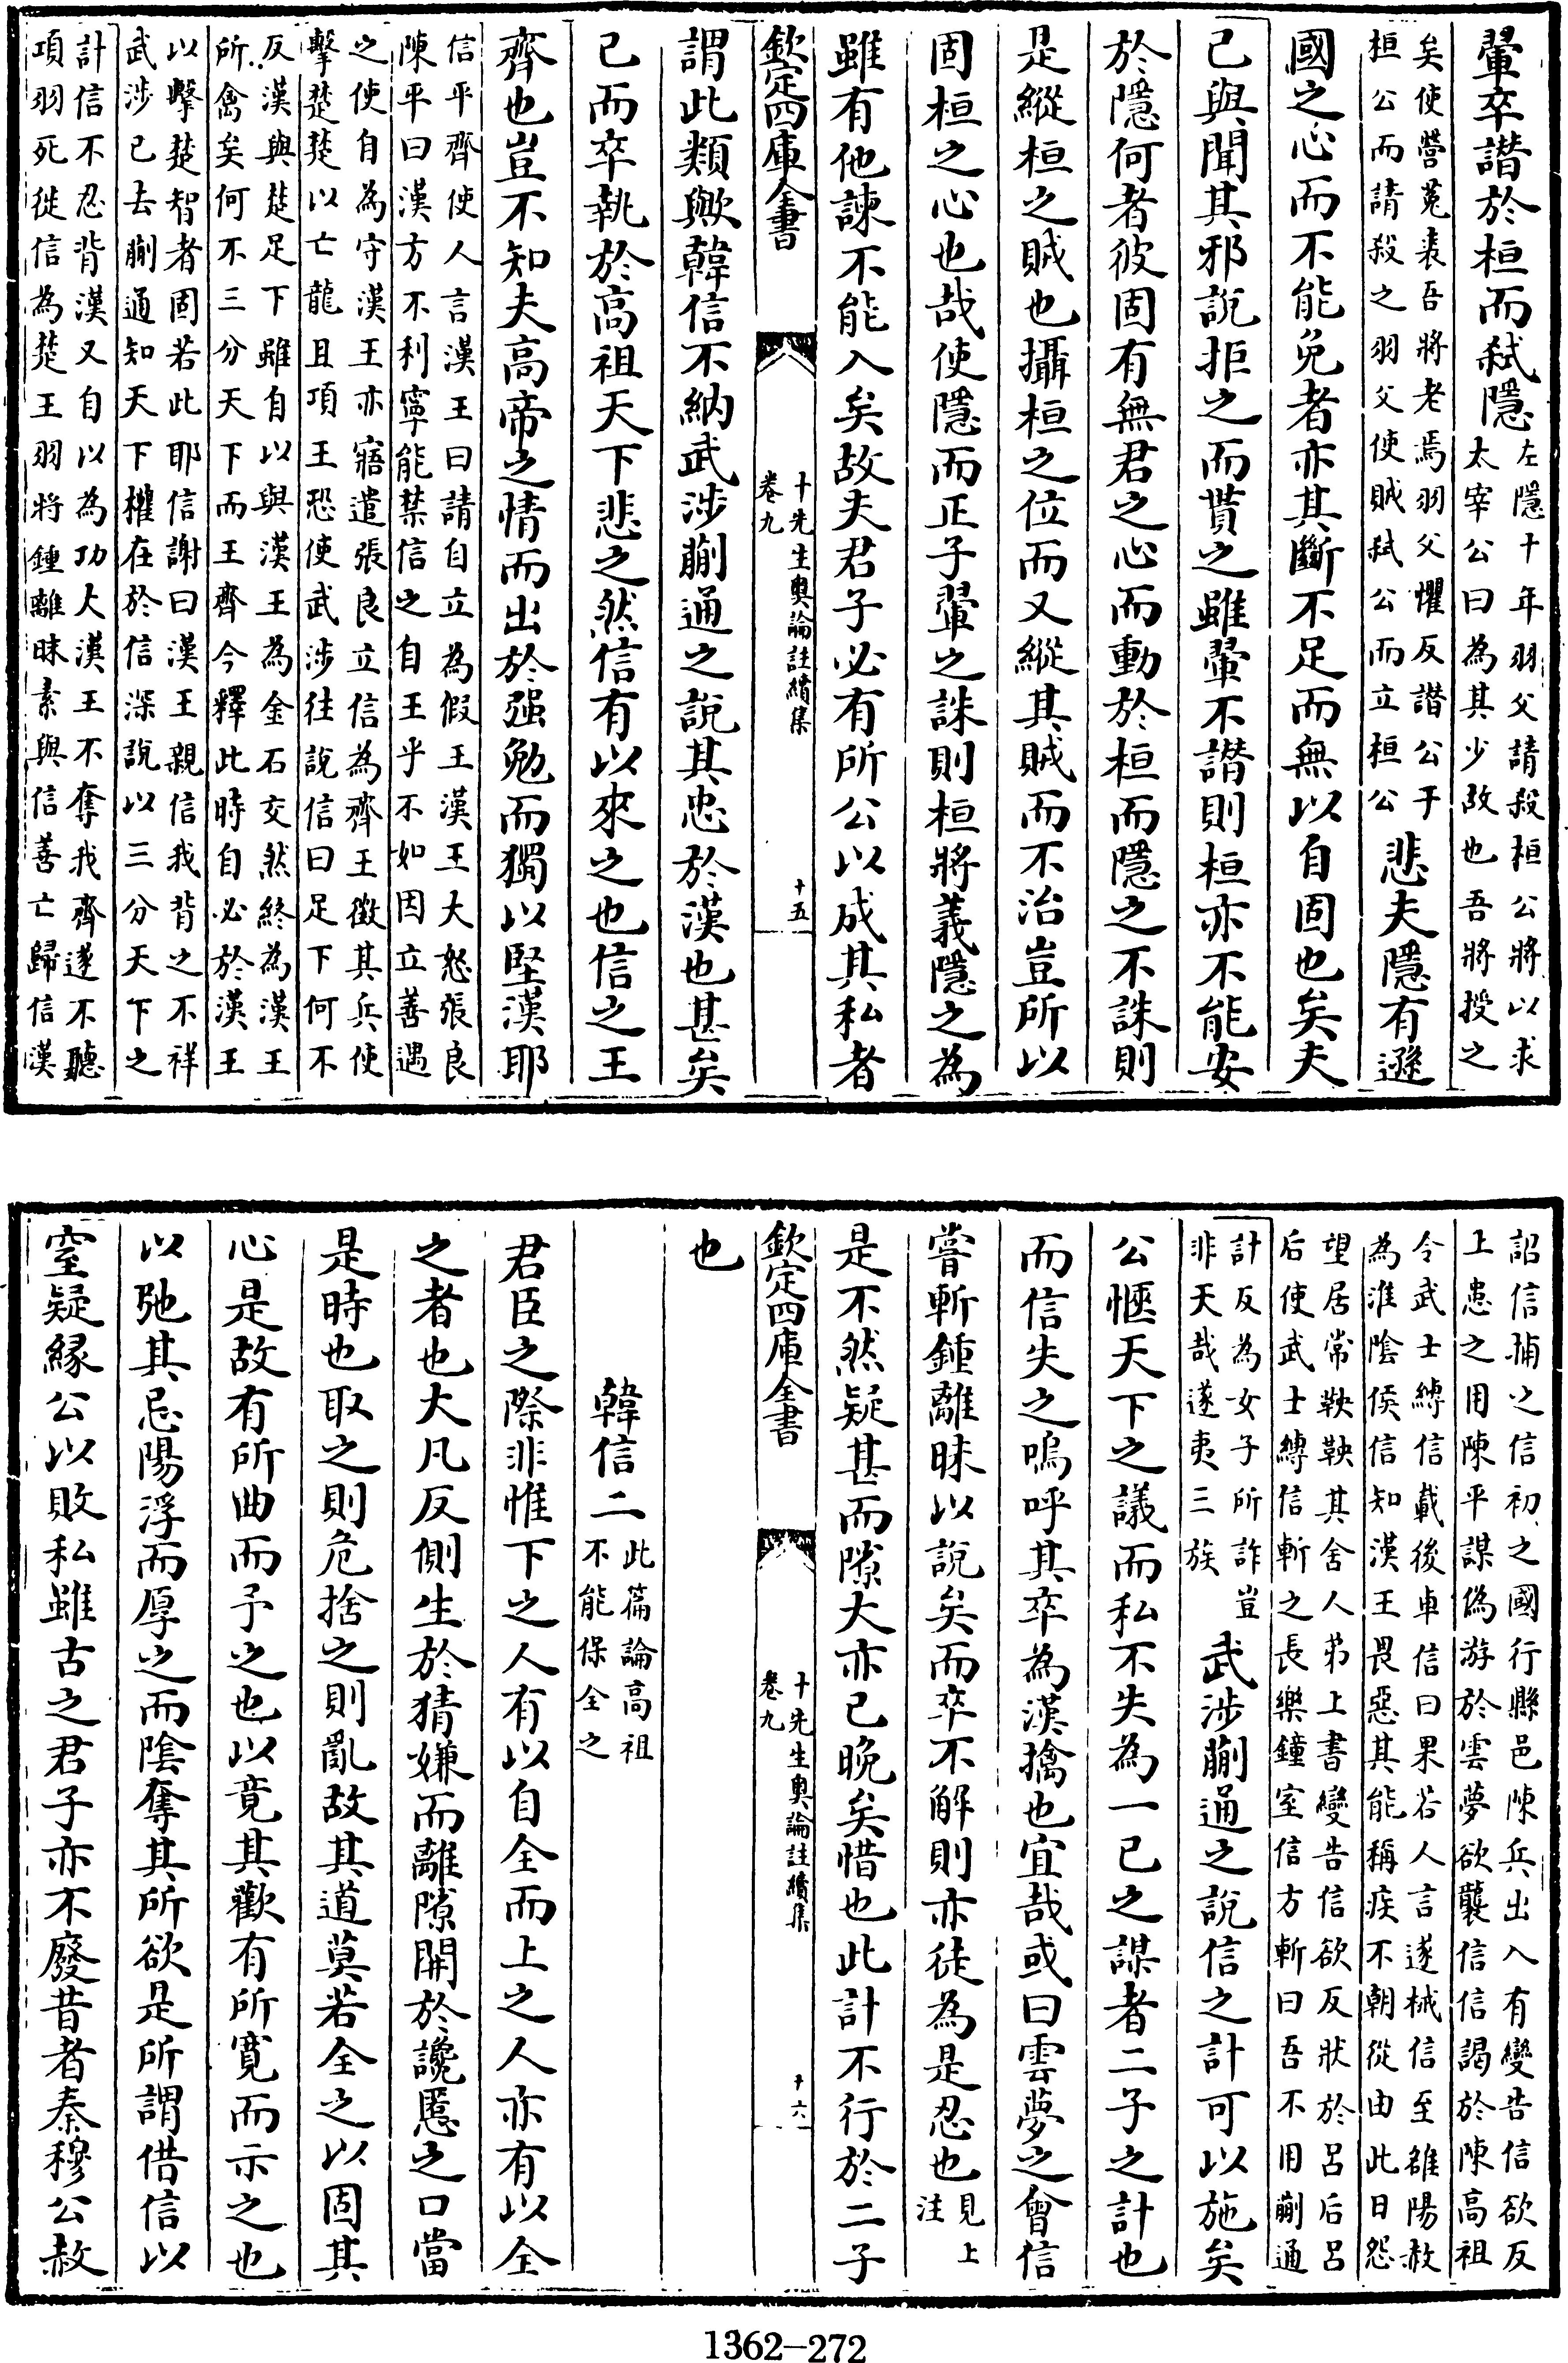 翬卒譖於桓而弑隱左隱十年羽父請殺桓公將以求
太宰公曰為其少故也吾將授之
矣使營菟裘吾將老焉羽父懼反譖公于
桓公而請殺之羽父使賊弑公而立桓公悲夫隱有遜
國之心而不能免者亦其斷不足而無以自固也矣夫
已與聞其邪說拒之而貰之雖翬不譖則桓亦不能安
於隱何者彼固有無君之心而動於桓而隱之不誅則
是縱桓之賊也攝桓之位而又縱其賊而不治豈所以
固桓之心也哉使隱而正子翬之誅則桓將義隱之為
雖有他諫不能入矣故夫君子必有所公以成其私者
欽定四庫全書
十先生奧論註續集
卷九
十五
謂此類歟韓信不納武涉蒯通之說其忠於漢也甚矣
已而卒執於高祖天下悲之然信有以來之也信之王
齊也豈不知夫高帝之情而出於强勉而獨以堅漢耶
信平齊使人言漢王曰請自立為假王漢王大怒張良
陳平曰漢方不利寧能禁信之自王乎不如因立善遇
之使自為守漢王亦寤遣張良立信為齊王徵其兵使
擊楚楚以亡龍且項王恐使武涉往說信曰足下何不
反漢與楚足下雖自以與漢王為金石交然終為漢王
所禽矣何不三分天下而王齊今釋此時自必於漢王
以擊楚智者固若此耶信謝曰漢王親信我背之不祥
武涉已去蒯通知天下權在於信深說以三分天下之
計信不忍背漢又自以為功大漢王不奪我齊遂不聽
項羽死徙信為楚王羽將鍾離昧素與信善亡歸信漢
詔信捕之信初之國行縣邑陳兵出入有變告信欲反
上患之用陳平謀偽游於雲夢欲襲信信謁於陳高祖
令武士縛信載後車信曰果若人言遂械信至雒陽赦
為淮陰侯信知漢王畏惡其能稱疾不朝從由此日怨
望居常鞅鞅其舍人弟上書變告信欲反狀於呂后呂
后使武士縛信斬之長樂鐘室信方斬曰吾不用蒯通
計反為女子所詐豈
非天哉遂夷三族武涉蒯通之說信之計可以施矣
公愜天下之議而私不失為一已之謀者二子之計也
而信失之嗚呼其卒為漢擒也宜哉或曰雲夢之會信
嘗斬鍾離昧以說矣而卒不解則亦徒為是忍也見上
注
是不然疑甚而隙大亦已晚矣惜也此計不行於二子
欽定四庫全書
十先生奧論註續集
卷九
十六
也
韓信二此篇論高祖
不能保全之
君臣之際非惟下之人有以自全而上之人亦有以全
之者也大凡反側生於猜嫌而離隙開於讒慝之口當
是時也取之則危捨之則亂故其道莫若全之以固其
心是故有所曲而予之也以竟其歡有所寛而示之也
以弛其忌陽浮而厚之而陰奪其所欲是所謂借信以
窒疑緣公以敗私雖古之君子亦不廢昔者秦穆公赦
1362-272